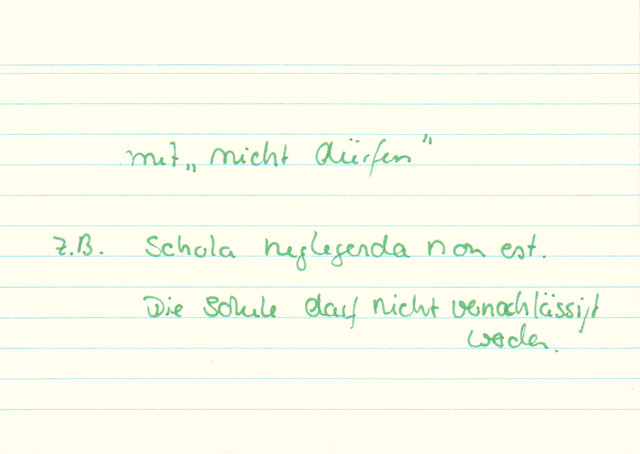 mit „nicht dürfen"
z.B. Schola neglegenda non est.
Die Schule darf nicht vernachlässigt
werden.